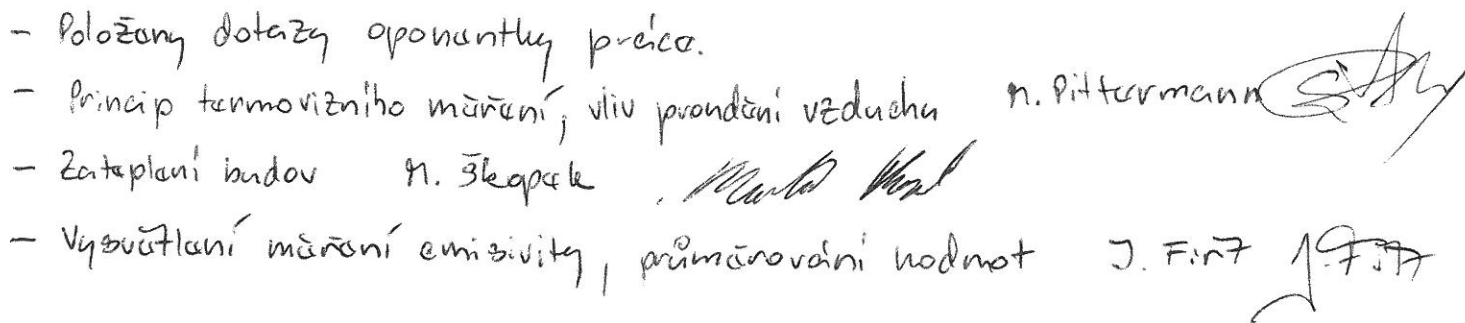 - Položeny dotazy oponentky práce.
- Princip termovizního měření, vliv proudění vzduchu M. Pittermann
- Zateplení budov M. Škopek
- Vysvětlení měření emisivity, průměrování hodnot J. Fiřt